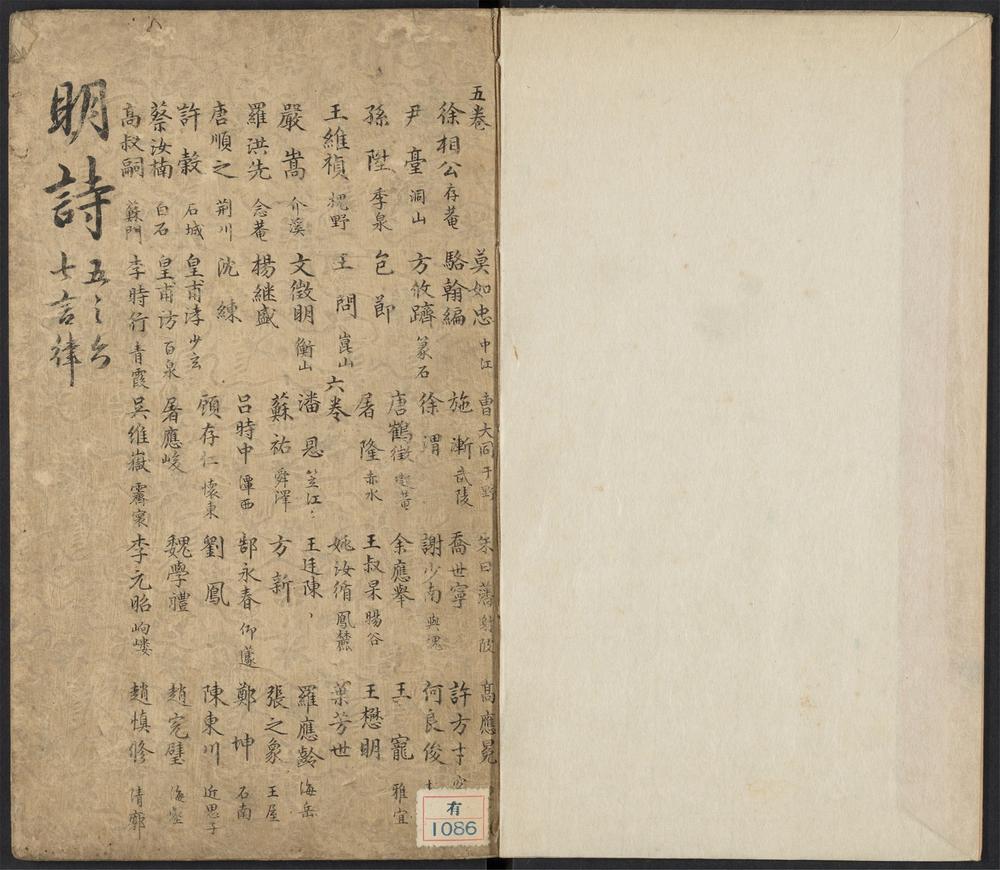 五卷
徐相公 存菴
尹臺 洞山
孫陞 季泉
王維楨 槐野
嚴嵩 介溪
羅洪先 念菴
唐順之 荆川
許穀 石城
蔡汝楠 白石
高叔嗣 蘇門
莫如忠 中江
駱翰編
方攸躋 篆石
包節
王問 崑山
文徵明 衡山
楊継盛
沈練
皇甫涍 少玄
皇甫汸 百泉
李時行 青霞
曹大同 于野
施漸 武陵
徐渭
唐鶴徵
屠隆 赤水
六卷
潘恩 笠江
蘇祐 舜澤
呂時中 潭西
顧存仁 懷東
屠應峻
吳維嶽 霽寰
朱曰藩 射陂
喬世寧
謝少南 與槐
余應舉
王叔杲 暘谷
姚汝循 鳳麓
王廷陳
方新
郜永春 仰蘧
劉鳳
魏學禮
李元昭 岣嶁
高應冕
許方寸
何良俊
王寵 雅宜
王懋明
葉芳世
羅應齡 海岳
張之象 王屋
鄭坤 石南
陳東川 近思子
趙完璧 海壑
趙慎修 清
明詩 五之六
七言律
有
1086